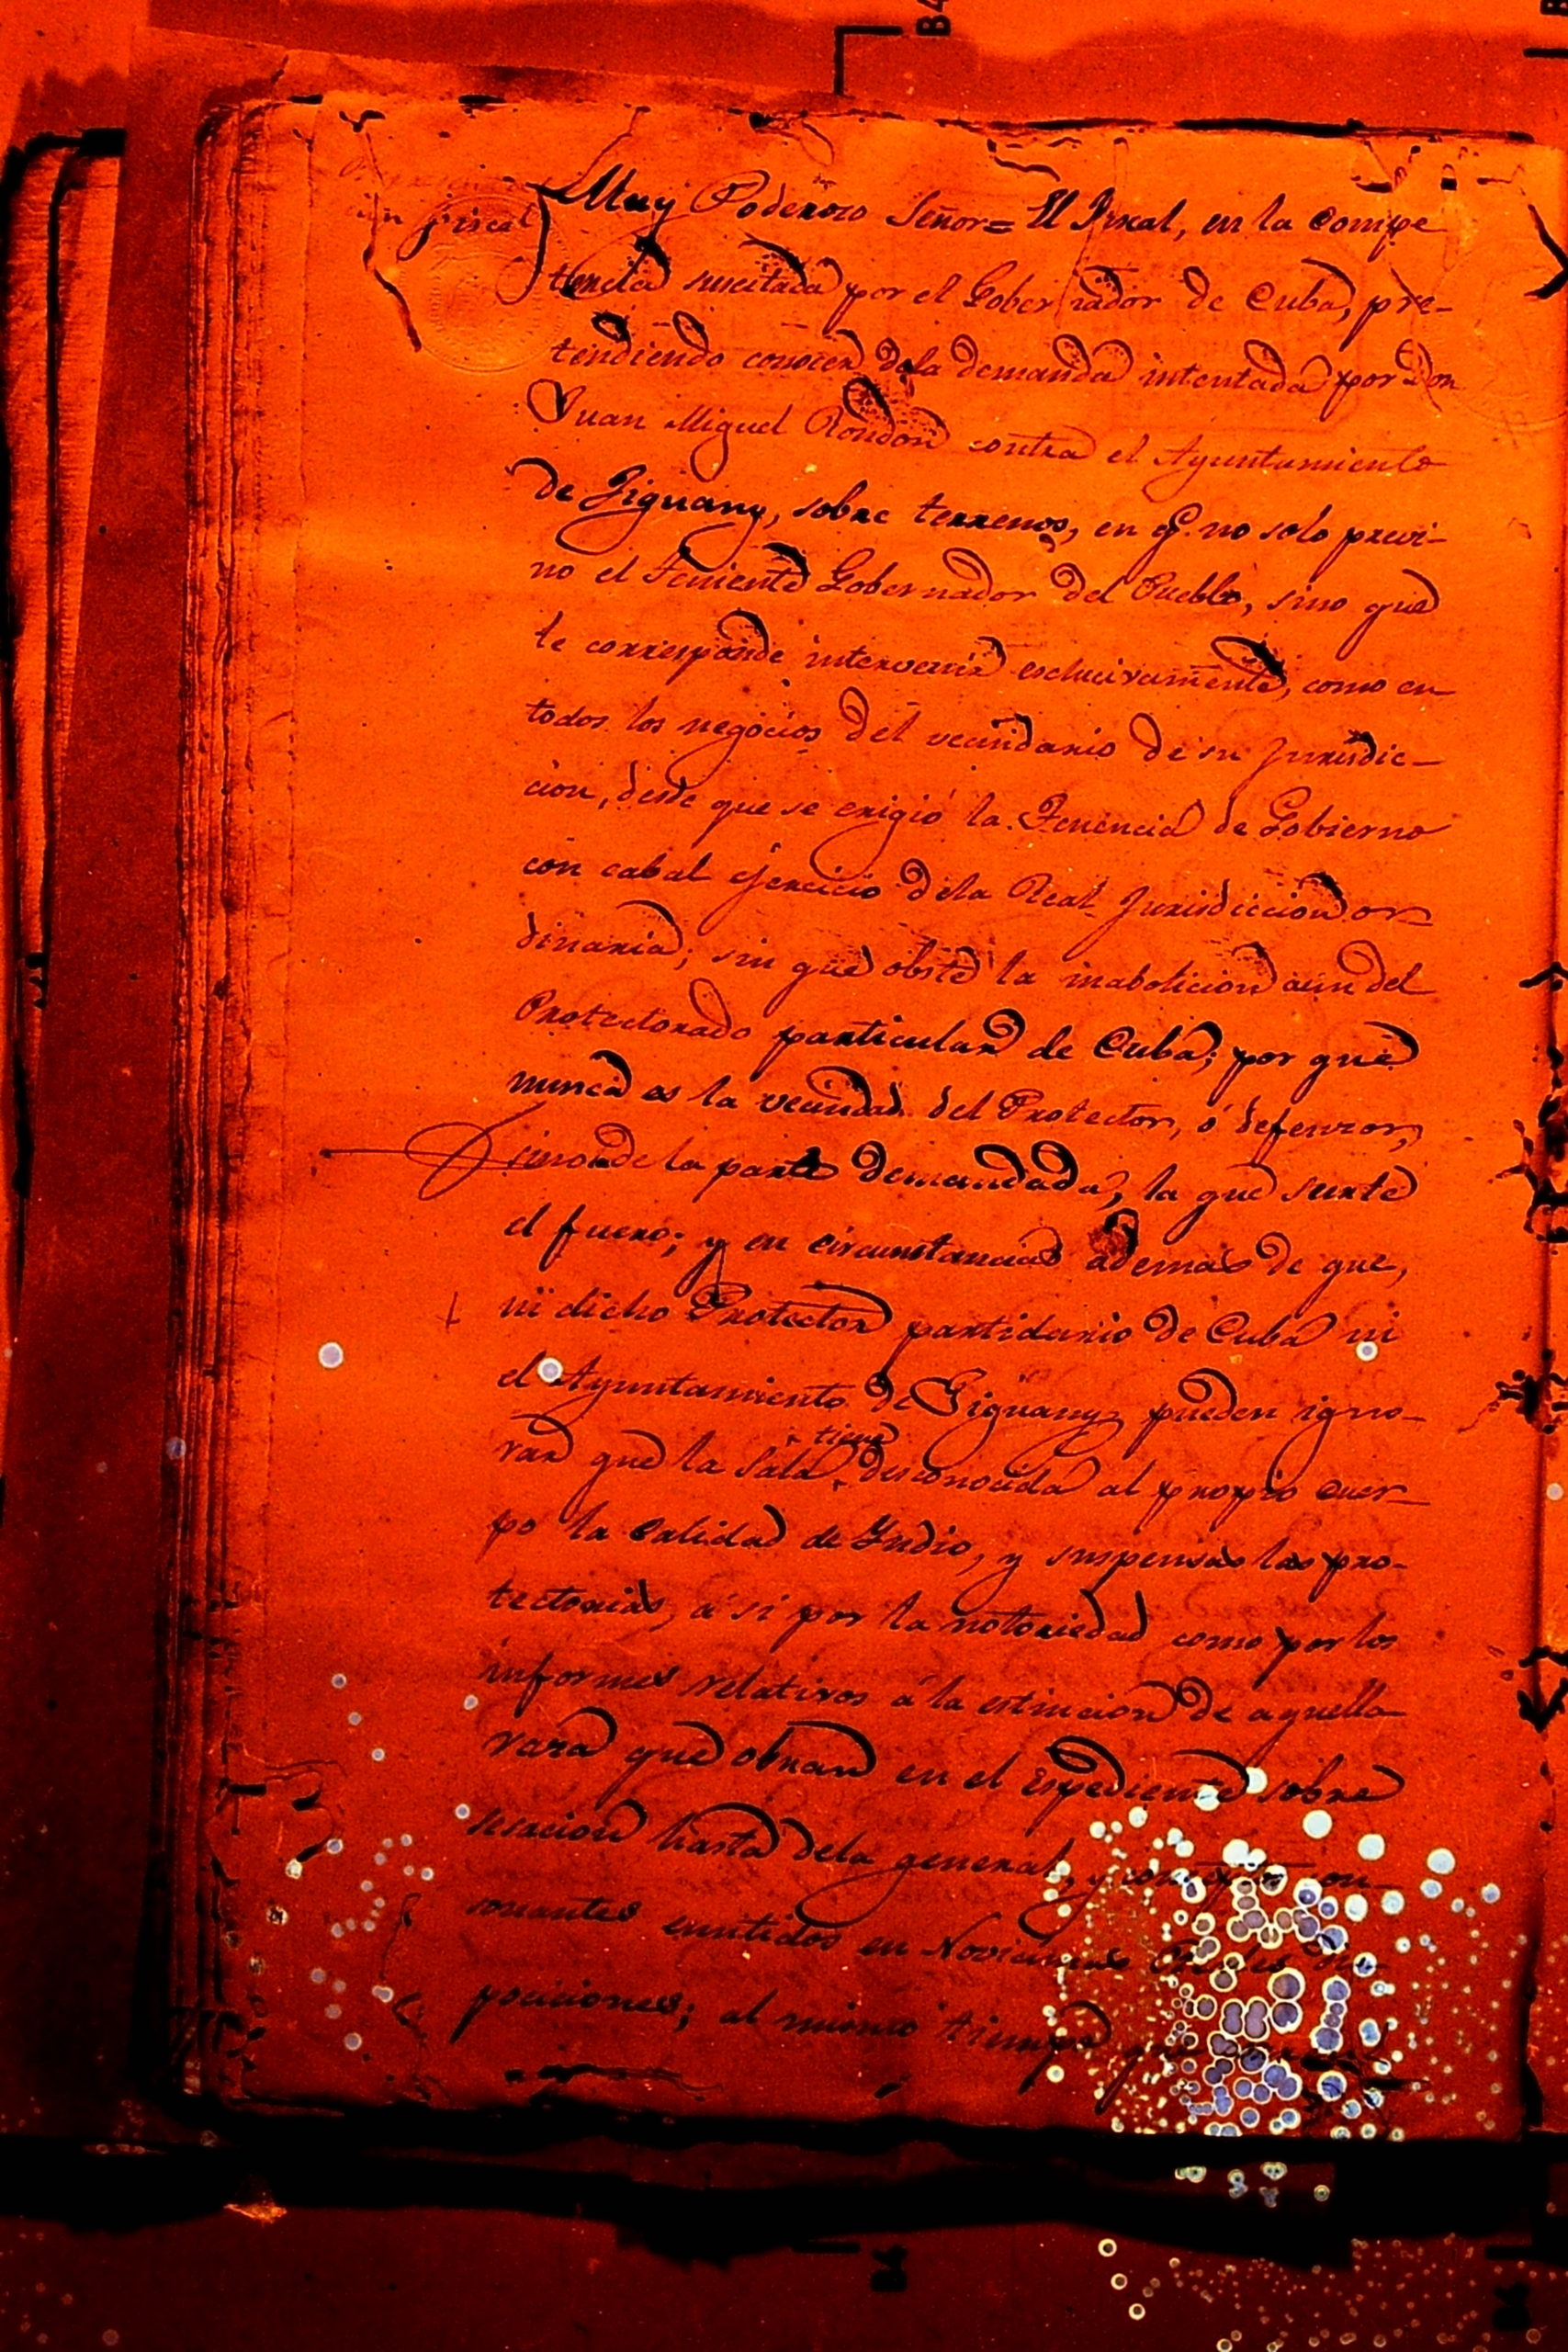 un fiscal
Muy Poderoso Señor= El Fiscal, en la compe
tencia suscitada por el Gobernador de Cuba, pre-
tendiendo conocer dela demanda intentada por Don
Juan Miguel Rondon contra el Ayuntamiento
de Jiguany, sobre terrenos, en q.e no solo previ-
no el Teniente Gobernador del Pueblo, sino que
le corresponde intervenir esclusivamente, como en
todos los negocios del vecindario de su Jurisdic-
cion, desde que se erigió la Tenencia de Gobierno
con cabal ejercicio dela Real Jurisdiccion or-
dinaria; sin que obste la inabolicion aun del
Protectorado particular de Cuba; por que
nunca es la vecindad del Protector, ó defensor,
sino de la parte demandada, la que surte
el fuero; y en circunstancias ademas de que,
ni dicho Protector partidario de Cuba ni
el Ayuntamiento de Jiguany pueden igno-
rar que la Sala tiene desconocida al propio cuer-
po la calidad de Yndio, y suspensas las pro-
tectorias, á si por la notoriedad como por los
informes relativos á la estincion de aquella
vara que obran en el Espediente sobre
sesacion hasta dela general, y con
sonantes emitidos en
posiciones; al mismo tiempo que
B4
B4